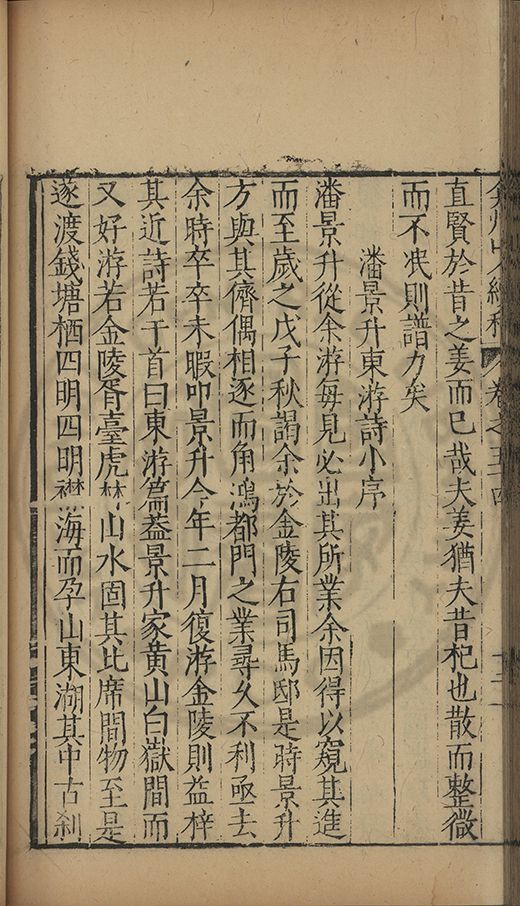 弇州山人續稿 卷之五十四 十二
直賢於昔之姜而已哉夫姜猶夫昔杞也散而整微
而不泯則譜力矣
潘景升東游詩小序
潘景升從余游每見必出其所業余因得以窺其進
而至歲之戊子秋謁余於金陵右司馬邸是時景升
方與其儕偶相逐而角鴻都門之業尋久不利亟去
余時卒卒未暇叩景升今年二月復游金陵則益梓
其近詩若干首曰東游篇葢景升家黃山白嶽間而
又好游若金陵胥臺虎林山水固其比席間物至是
遂渡錢塘栖四明四明襟海而孕山東湖其中古刹